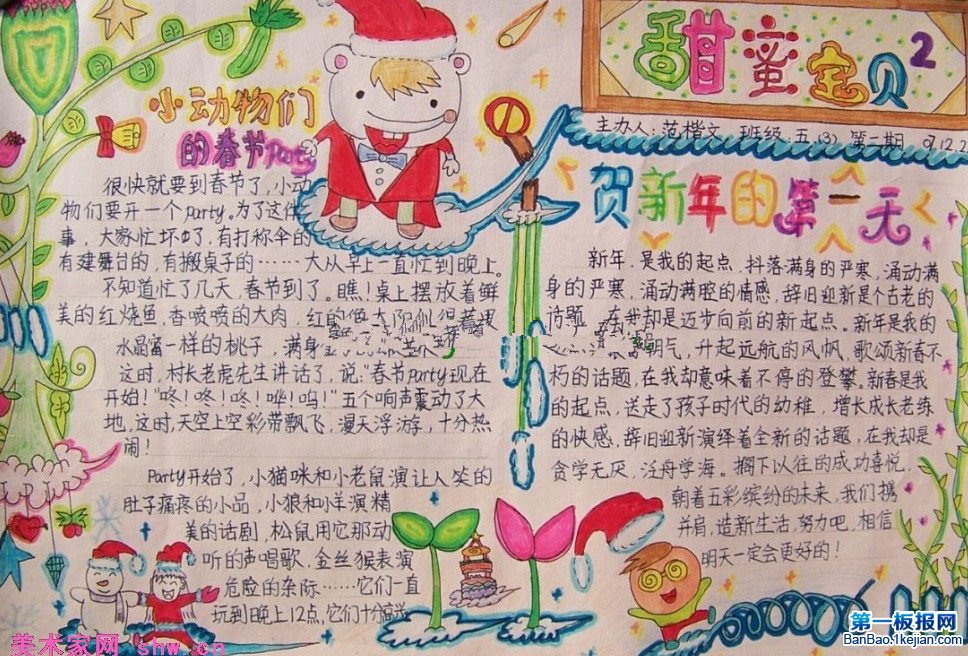 甜蜜宝贝2
主办人:范楷文 班级:五(3) 第二期
小动物们
的春节Party
很快就要到春节了,小动
物们要开一个party。为了这件
事,大家忙坏了,有打称伞的
有建舞台的,有搬桌子的……大从早上一直忙到晚上。
不知道忙了几天,春节到了。瞧!桌上摆放着鲜
美的红烧鱼 香喷喷的大肉,红的
水晶富一样的桃子,满身
这时,村长老虎先生讲话了,说:"春节party现在
开始!"咚!咚!咚!哗!呜!"五个响声震动了大
地,这时,天空上空彩带飘飞,漫天浮游,十分热
闹!
Party开始了,小猫咪和小老鼠演让人笑的
肚子痛疼的小品,小狼和小羊演精
美的话剧,松鼠用它那动
听的声唱歌,金丝猴表演
危险的杂际……它们一直
玩到晚上12点,它们十分高兴
贺新年的第一天
新年,是我的起点,抖落满身的严寒,涌动满
身的严寒,涌动满腔的情感,辞旧迎新是个古老的
话题,在我却是迈步向前的新起点。新年是我的
明气,升起远航的风帆,歌颂新春不
朽的话题,在我却意味着不停的登攀。新春是我
的起点,送走了孩子时代的幼稚,增长成长老练
的快感,辞旧迎新演绎着全新的话题,在我却是
贪学无厌,泛舟学海。搁下以往的成功喜悦,
朝着五彩缤纷的未来,我们携
并肩,造新生活,努力吧,相信
明天一定会更好的!
美术家网 shw.cn
第一板报网
BanBao.1kejian.com